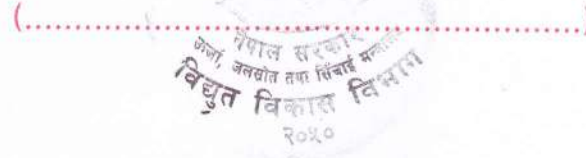 (..............................................................................)
नेपाल सरकार
ऊर्जा, जलस्रोत तथा सिंचाई मन्त्रालय
विद्युत विकास विभाग
२०५०